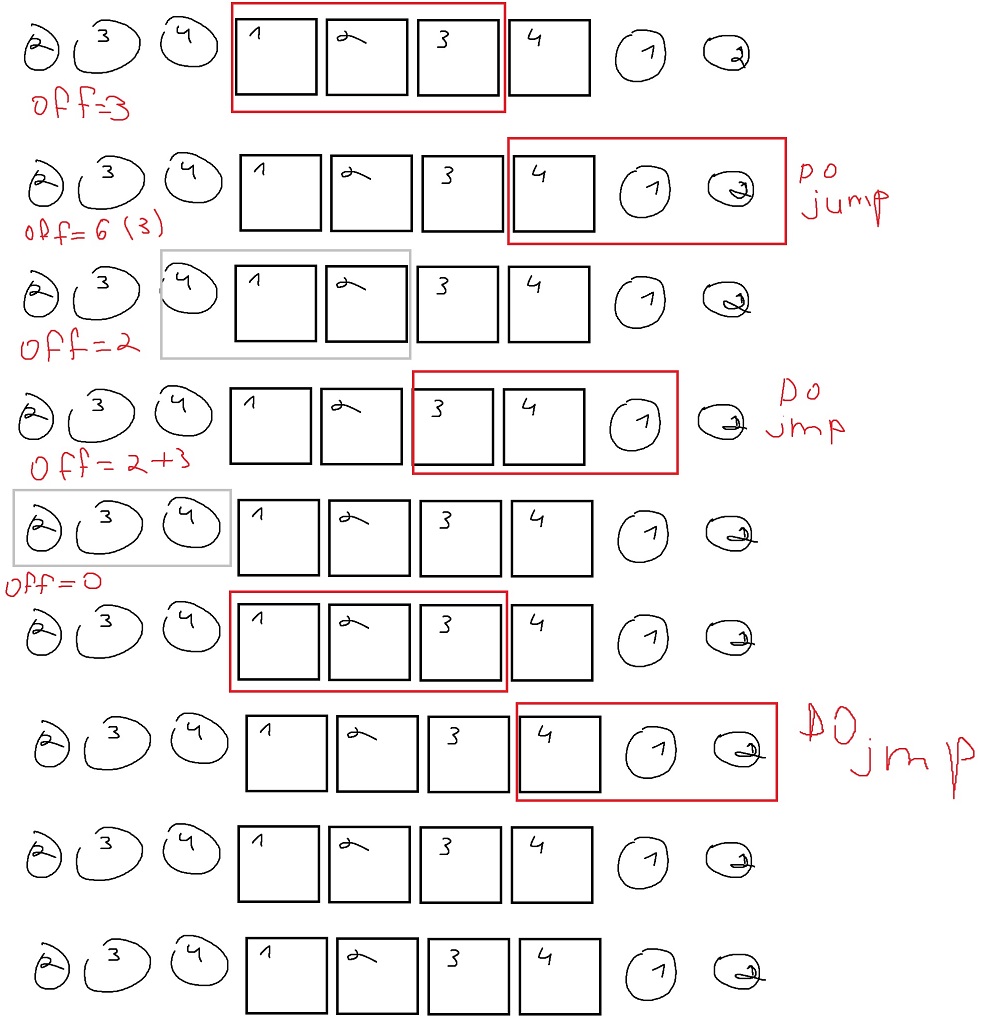 2 3 4 1 2 3 4 1 2
off=3
2 3 4 1 2 3 4 1 2 DO
jump
off=6 (3)
2 3 4 1 2 3 4 1 2
off=2
2 3 4 1 2 3 4 1 2 DO
jmp
off=2+3
2 3 4 1 2 3 4 1 2
off=0
2 3 4 1 2 3 4 1 2
2 3 4 1 2 3 4 1 2 DO
jmp
2 3 4 1 2 3 4 1 2
2 3 4 1 2 3 4 1 2